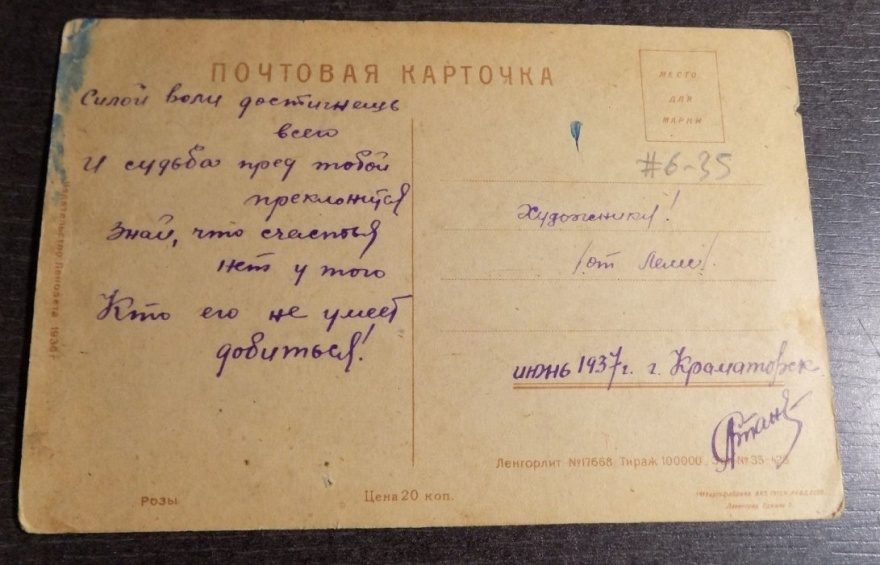 ПОЧТОВАЯ КАРТОЧКА
МЕСТО
ДЛЯ
МАРКИ
Силой воли достигнешь
всего
И судьба пред тобой
преклонится
Знай, что счастья
нет у того
Кто его не умеет
добиться!
#6-35
Художнику!
/от
июнь 1937г. г. Краматорск
Издательство Ленсовета 1936г
Ленгорлит №17668 Тираж 100000
Розы
Цена 20 коп.